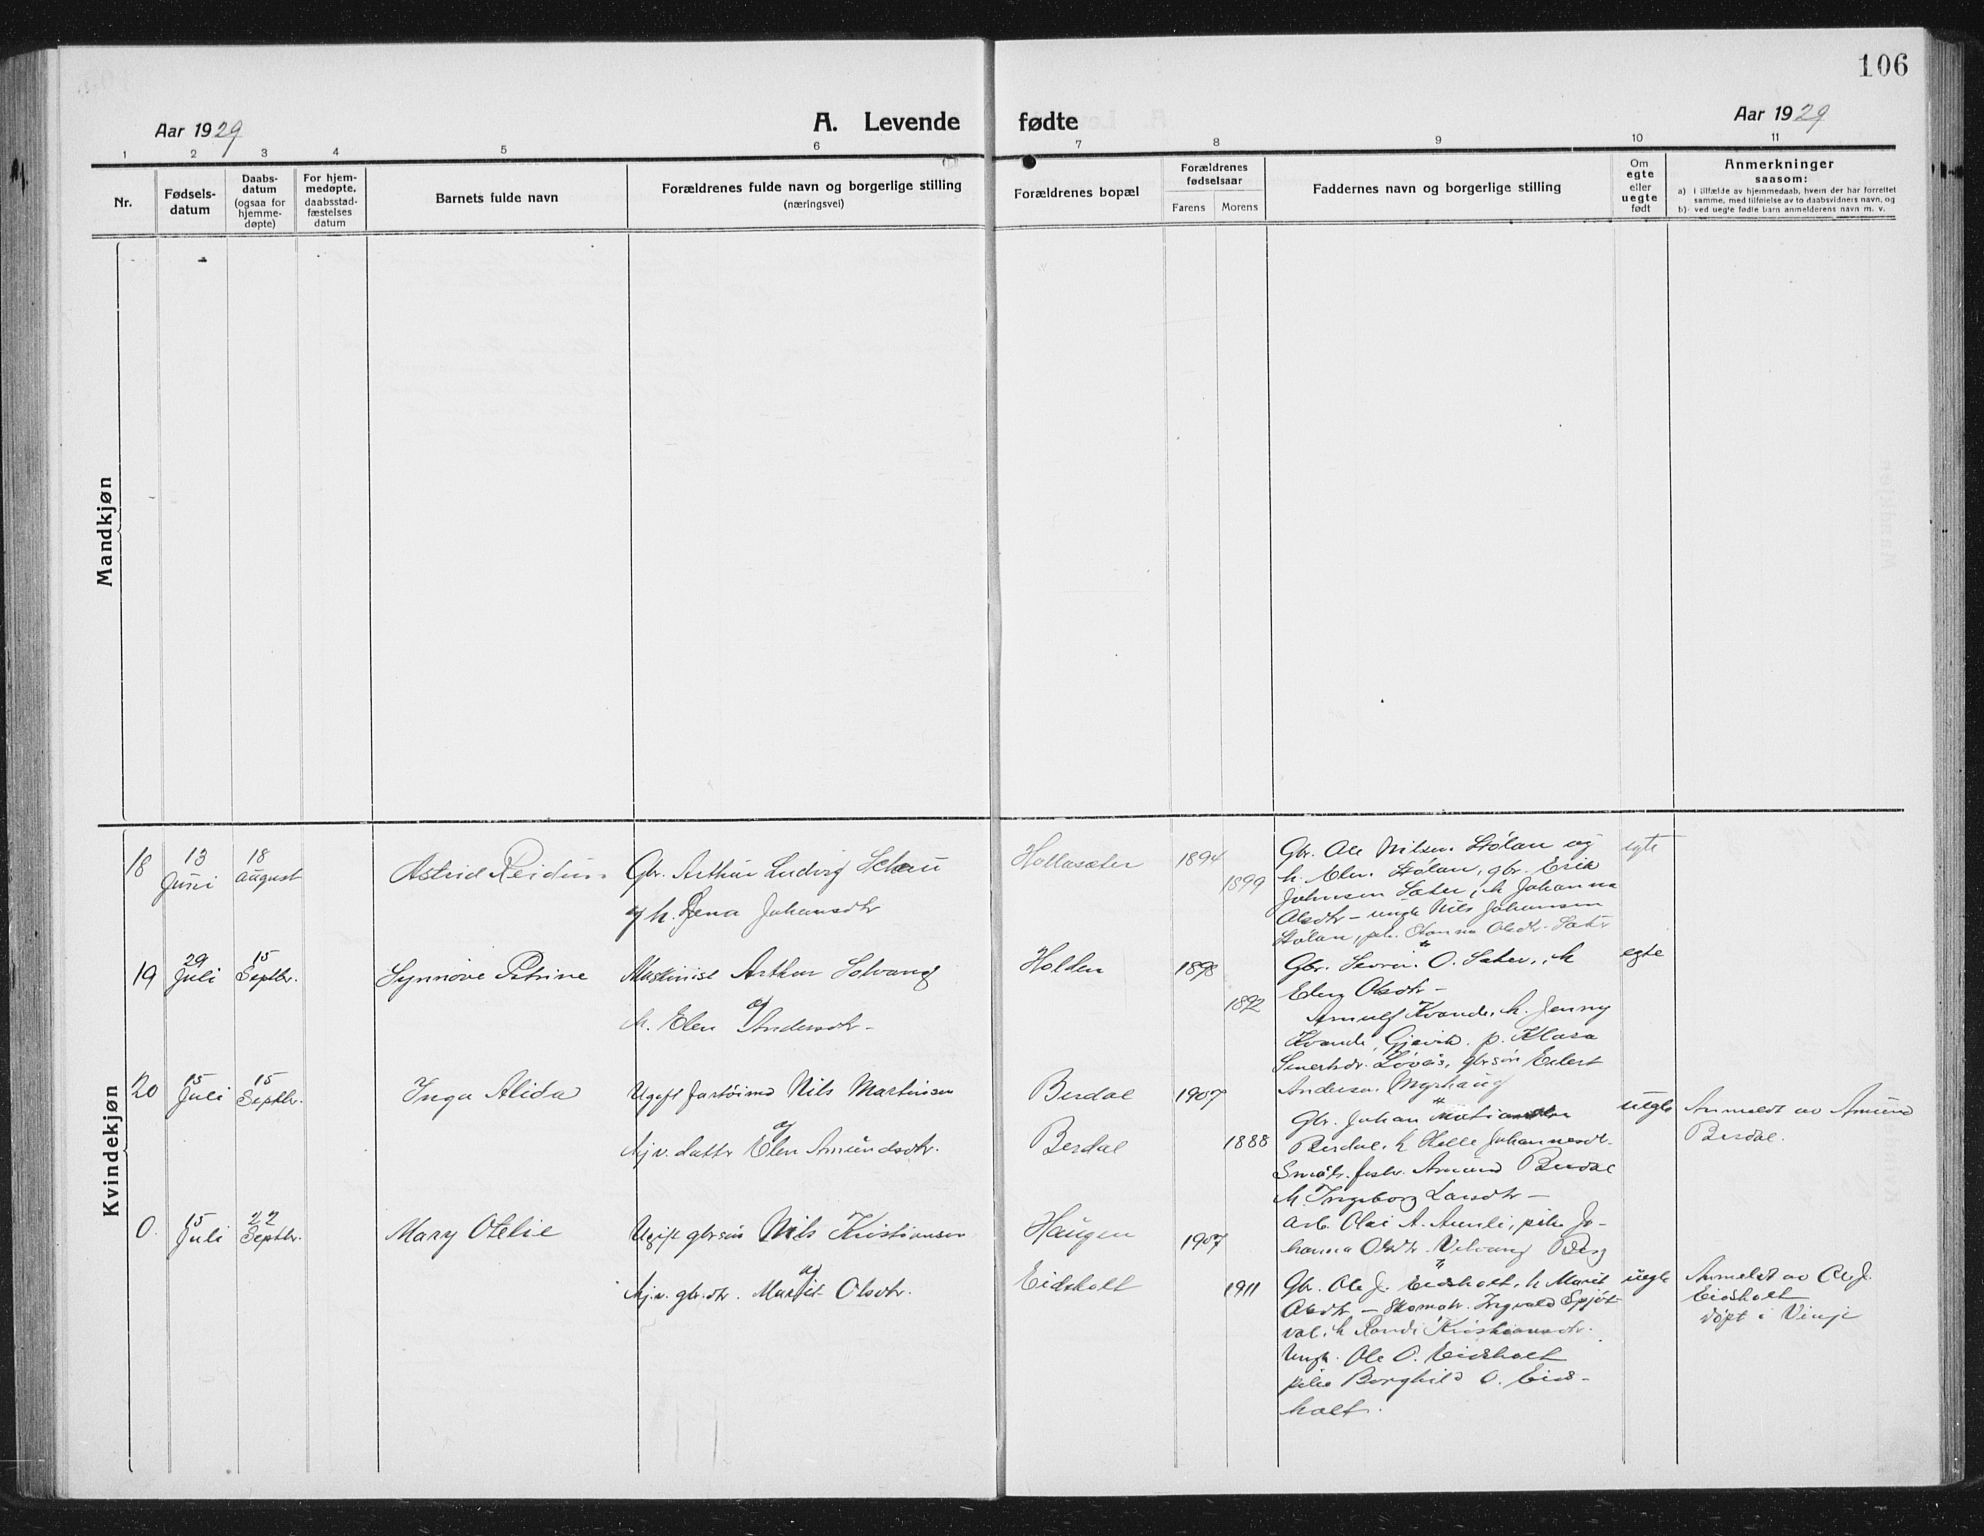 106
Aar 1929
A. Levende fødte
Aar 1929
1 2 3 4 5 6 7 8 9 10 11
Nr.
Fødsels-
datum
Daabs-
datum
(ogsaa for
hjemme-
døpte)
For hjem-
medøpte,
daabsstad-
fæstelses
datum
Barnets fulde navn
Forældrenes fulde navn og borgerlige stilling
(næringsvei)
Forældrenes bopæl
Forældrenes
fødselsaar
Farens Morens
Faddernes navn og borgerlige stilling
Om
egte
eller
uegte
født
Anmerkninger
saasom:
a) i tilfælde av hjemmedaab, hvem der har forrettet
samme, med tilføielse av to daabsvidners navn, og
b) ved uegte fødte barn anmelderens navn m. v.
Mandkjøn
Kvindekjøn
18
13
Juni
18
august
Astrid Reidun
Gbr. Arthur Ludvig
og h. Lena Johansdtr
Hollasæter
1894
1899
Gbr. Ole Nilsen Stölan og
h. Elen Stölan, gbr. Erik
Johnsen Sæter, h. Johanna
Olsdtr – ungk Nils Johansen
Stölan, pik. Hanna Olsdtr. Sæter
egte
19
29
Juli
15
Septbr.
Synnöve Petrine
Maskinist Arthur Solvang
og
h. Elen Andersdtr –
Holden
1898
1892
Gbr. O. Sæter, h
Elen Olsdtr –
Arnulf Kvande, h. Jenny
Kvande, Gjevik. p. Klara
Löväs, gbrsön Edert
Andersen
egte
20
15
Juli
15
Septbr.
Inga Alida
Ugift Nils Martinsen
og
datter Elen Amundsdtr.
Berdal
Berdal
1907
1888
Gbr. Johan
Berdal, h Johannesdtr.
Småbr. Amund Berdal
h. Ingeborg Larsdtr –
arb. Olai A. Aunli, pike Jo-
hanna Olsdtr. Berg
uegte
Anmeldt av Amund
Berdal.
0.
15
Juli
22
Septbr.
Mary Otelie
Ugift gbrsön Nils Kristiansen
og
gbr.dtr. Marit Olsdtr.
Haugen
Eidsholt
1907
1911
Gbr. Ole J. Eidsholt, h Marit
Olsdtr – Skomakr. Ingvald Spjöt-
vol, h Randi Kristiansdtr.
Ungk. Ole O. Eidsholt
pike Borghild O. Eids-
holt.
uegte
Anmeldt av Ole J.
Eidsholt
döpt i Vinje